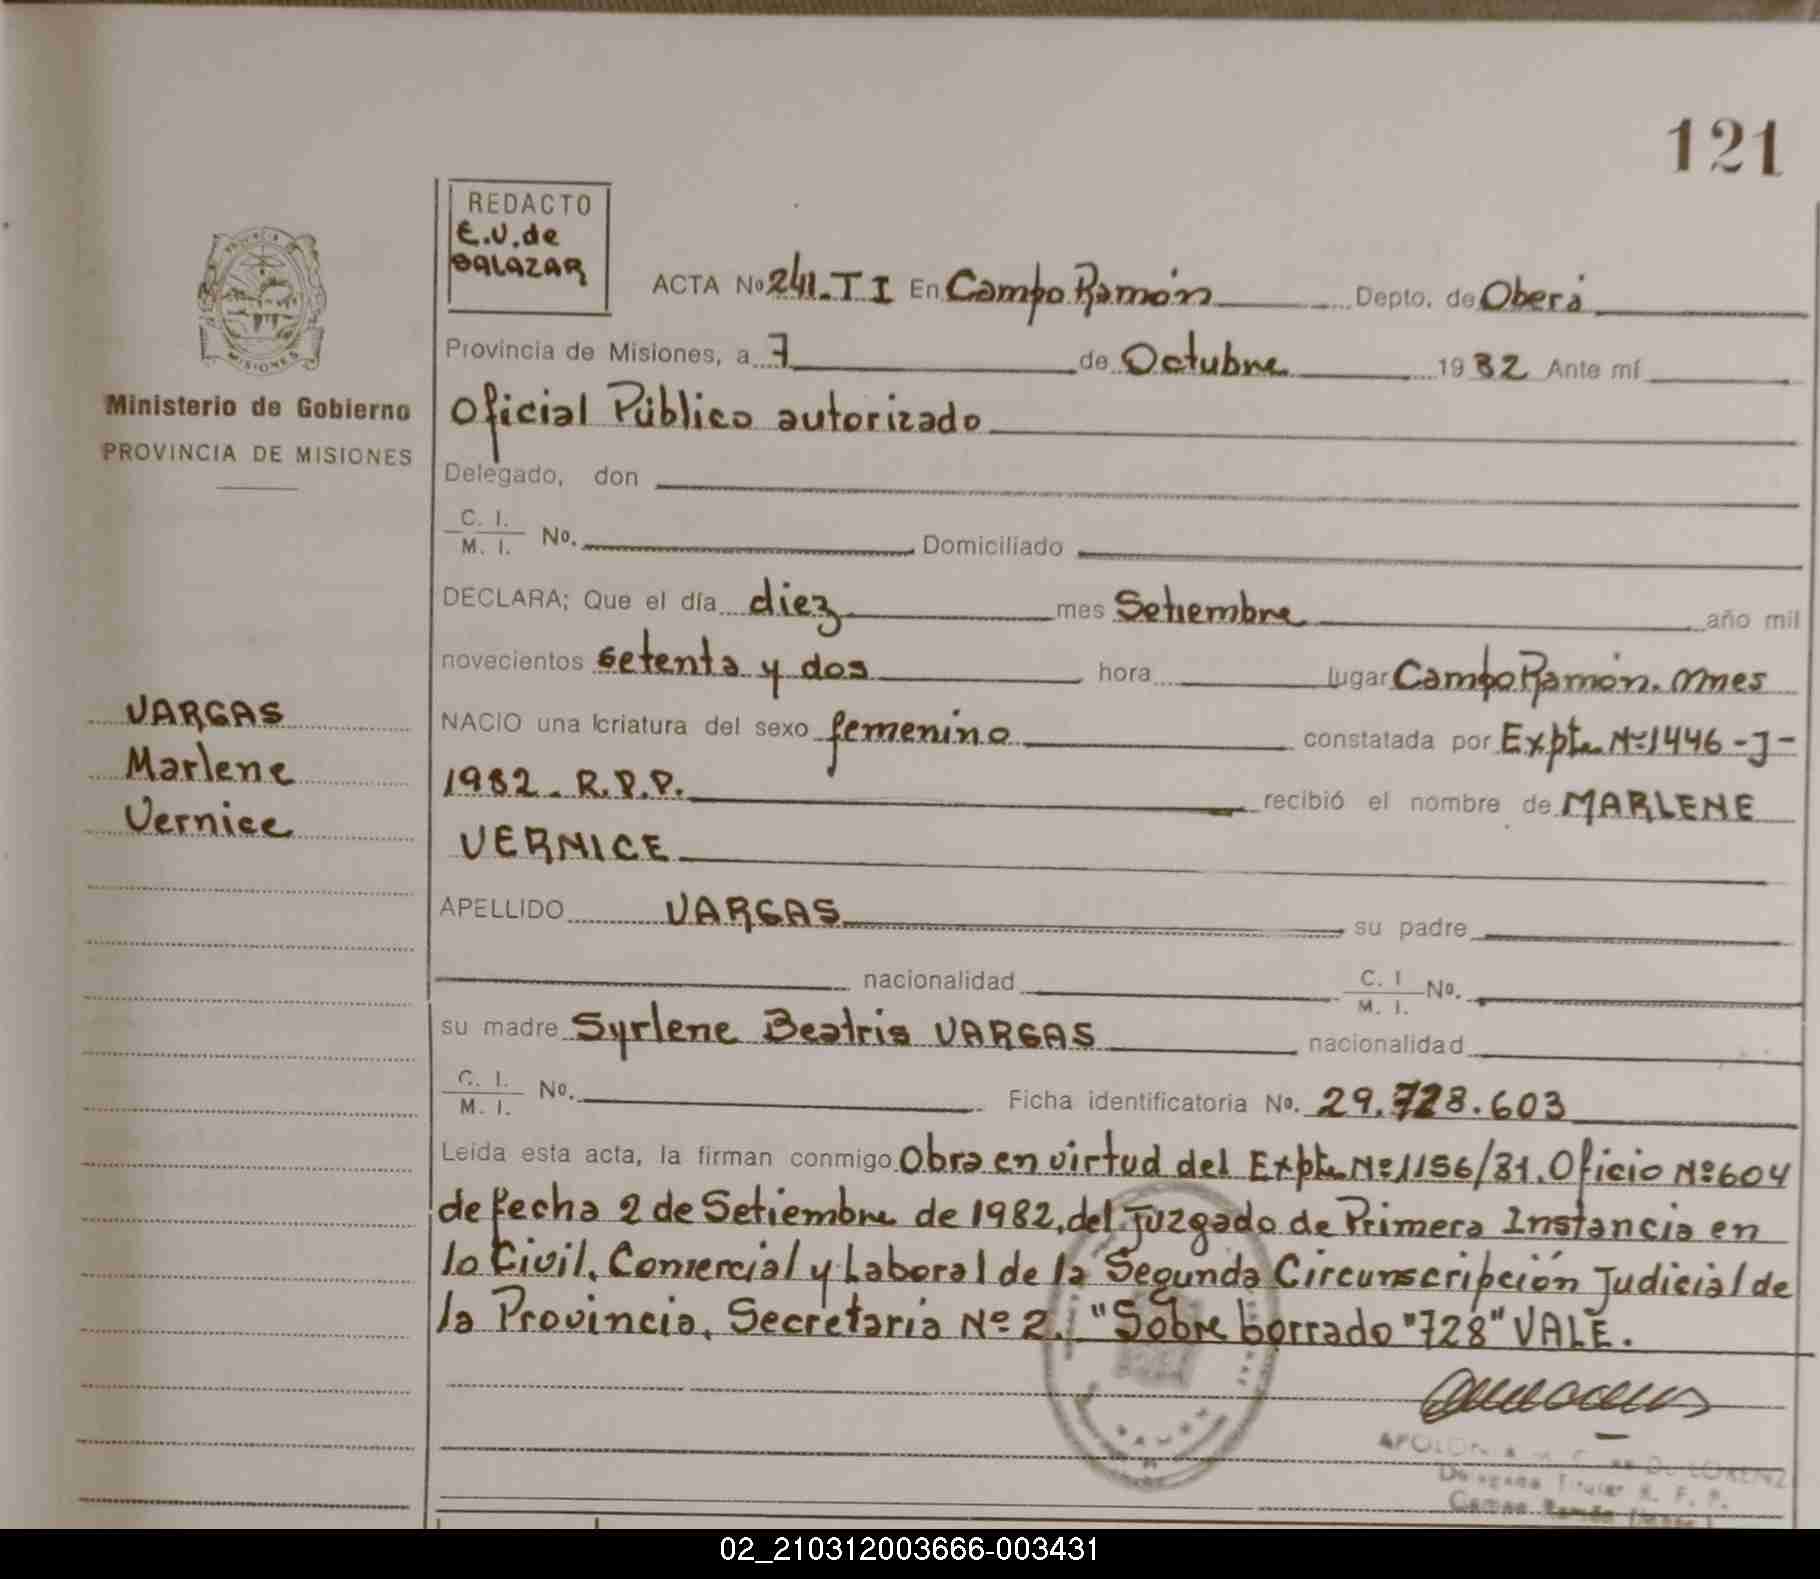 121
REDACTO
E.V. de
SALAZAR
ACTA Nº 241-T I En Campo Ramón Depto. de Oberá
Provincia de Misiones, a 7 de Octubre 1982 Ante mí
Ministerio de Gobierno
PROVINCIA DE MISIONES
Oficial Público autorizado
Delegado, don
C. I.
M. I. Nº. Domiciliado
DECLARA; Que el día diez mes Setiembre año mil
novecientos setenta y dos hora lugar Campo Ramón. Mnes
VARGAS
Marlene
Vernice
NACIO una criatura del sexo femenino constatada por Expte Nº 1446-J-
1982. R.P.P. recibió el nombre de MARLENE
VERNICE
APELLIDO VARGAS su padre
nacionalidad C. I. M. I. Nº.
su madre Syrlene Beatris VARGAS nacionalidad
C. I.
M. I. Nº. Ficha identificatoria Nº. 29.728.603
Leida esta acta, la firman conmigo Obra en virtud del Expte Nº 1156/81. Oficio Nº 604
de fecha 2 de Setiembre de 1982, del Juzgado de Primera Instancia en
lo Civil, Comercial y Laboral de la Segunda Circunscripción Judicial de
la Provincia, Secretaria Nº 2. "Sobre borrado "728" VALE.
DE LORENZ
Delegada Titular R. P. P.
Campo Ramón
02_210312003666-003431